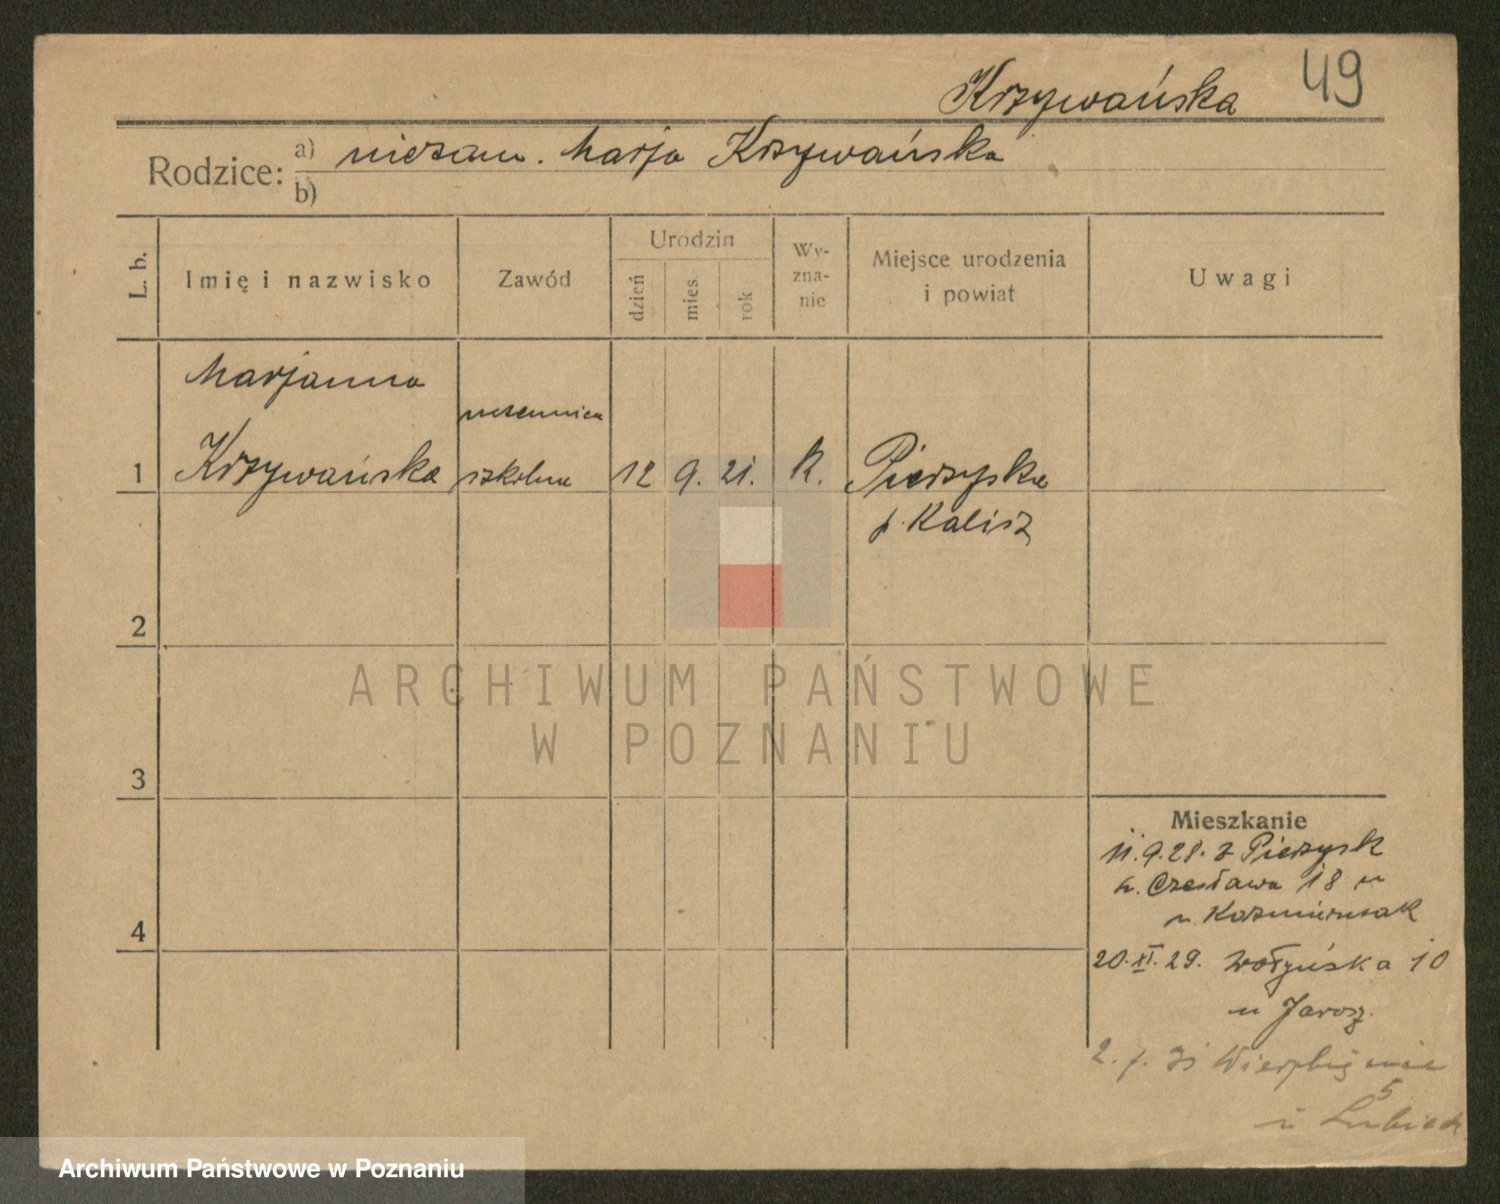 Krzywańska 49
Rodzice: a) niezam. Marja Krzywańska
b)
L. b. Imię i nazwisko Zawód Urodzin dzień mies. rok Wy-zna-nie Miejsce urodzenia i powiat Uwagi
Marjanna
uczennica
1 Krzywańska szkolna 12 9. 21. K. Pierzyska
p. Kalisz
2
ARCHIWUM PAŃSTWOWE
W POZNANIU
3
Mieszkanie
11.9.28. z Pierzysk
Czesława 18 u
Kazmierczak
4
20.XI.29. Wołyńska 10
u Jarosz.
2. 7. 31
5
u
Archiwum Państwowe w Poznaniu